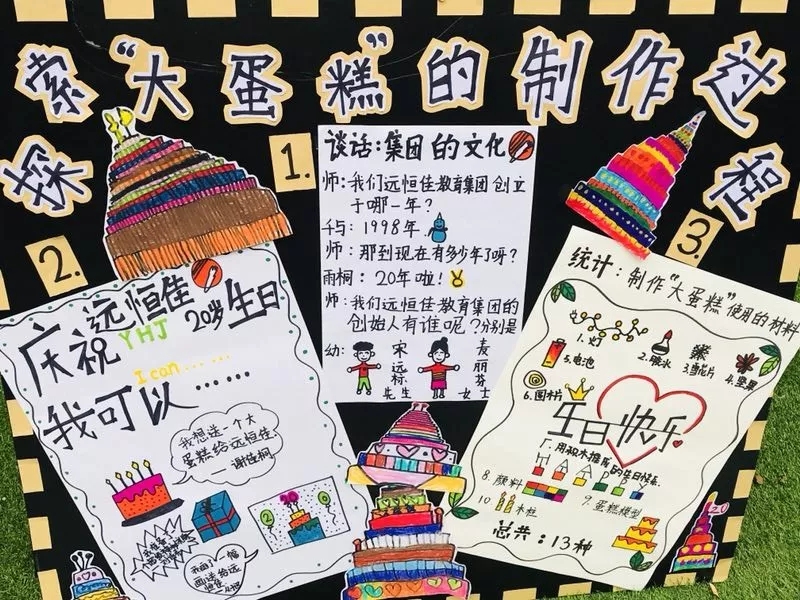 探索“大蛋糕”的制作过程
1.
谈话:集团的文化
师:我们远恒佳教育集团创立
于哪一年?
千与:1998年。
师:那到现在有多少年了呀?
雨桐:20年啦!
师:我们远恒佳教育集团的
创始人有谁呢?分别是
幼:
宋远标先生
麦丽芬女士
2.
庆祝远恒佳20岁生日
YHJ
I can……
我可以……
我想送一个大
蛋糕给远恒佳.
谢佳桐
3.
统计:制作“大蛋糕”使用的材料
1.灯
2.胶水
3.雪花片
4.坚果
5.电池
6.圆木片
生日快乐
7.用积木推成的生日快乐.
HAPPY
8.颜料
9.蛋糕模型
10.木粒
总共:13种